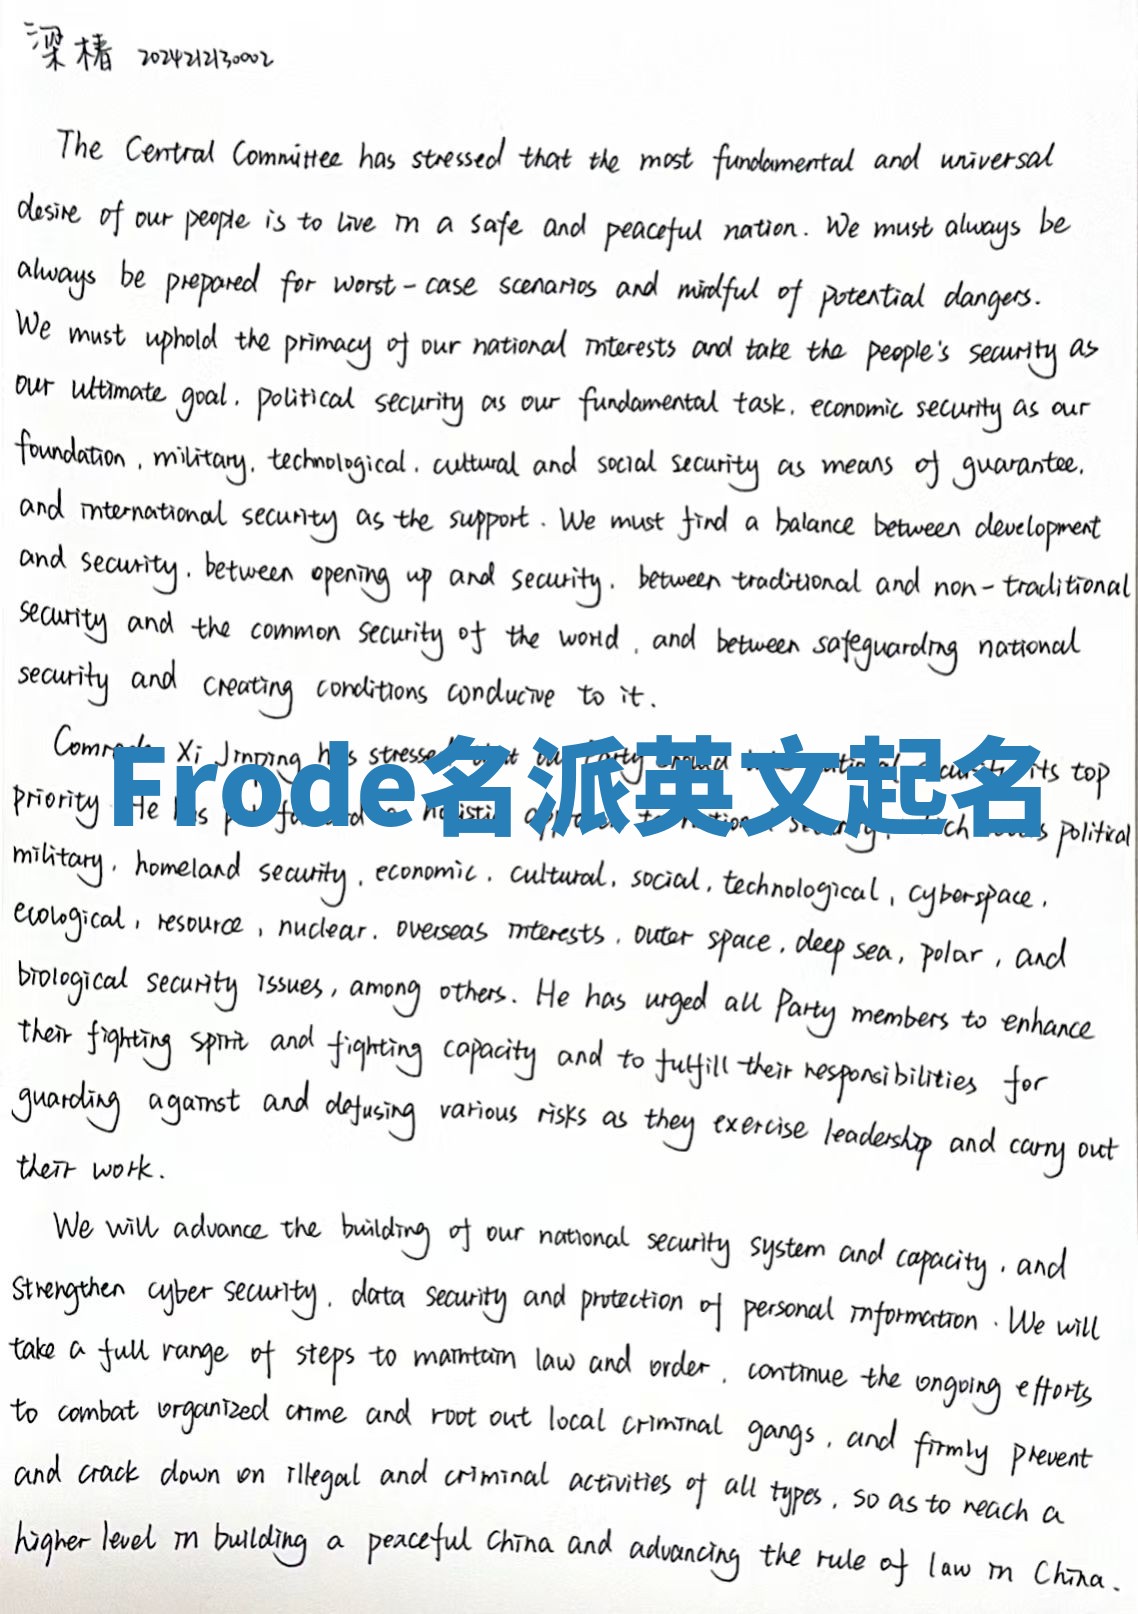 梁椿 2024212130002
The Central Committee has stressed that the most fundamental and universal
desire of our people is to live in a safe and peaceful nation. We must always be
always be prepared for worst-case scenarios and mindful of potential dangers.
We must uphold the primacy of our national interests and take the people's security as
our ultimate goal, political security as our fundamental task, economic security as our
foundation, military, technological, cultural and social security as means of guarantee,
and international security as the support. We must find a balance between development
and security, between opening up and security, between traditional and non-traditional
security and the common security of the world, and between safeguarding national
security and creating conditions conducive to it.
Xi Jinping has stressed top
Frode名派英文起名
priority He has political
military, homeland security, economic, cultural, social, technological, cyberspace,
ecological, resource, nuclear, overseas interests, outer space, deep sea, polar, and
biological security issues, among others. He has urged all Party members to enhance
their fighting spirit and fighting capacity and to fulfill their responsibilities for
guarding against and defusing various risks as they exercise leadership and carry out
their work.
We will advance the building of our national security system and capacity, and
strengthen cyber security, data security and protection of personal information. We will
take a full range of steps to maintain law and order, continue the ongoing efforts
to combat organized crime and root out local criminal gangs, and firmly prevent
and crack down on illegal and criminal activities of all types, so as to reach a
higher level in building a peaceful China and advancing the rule of law in China.